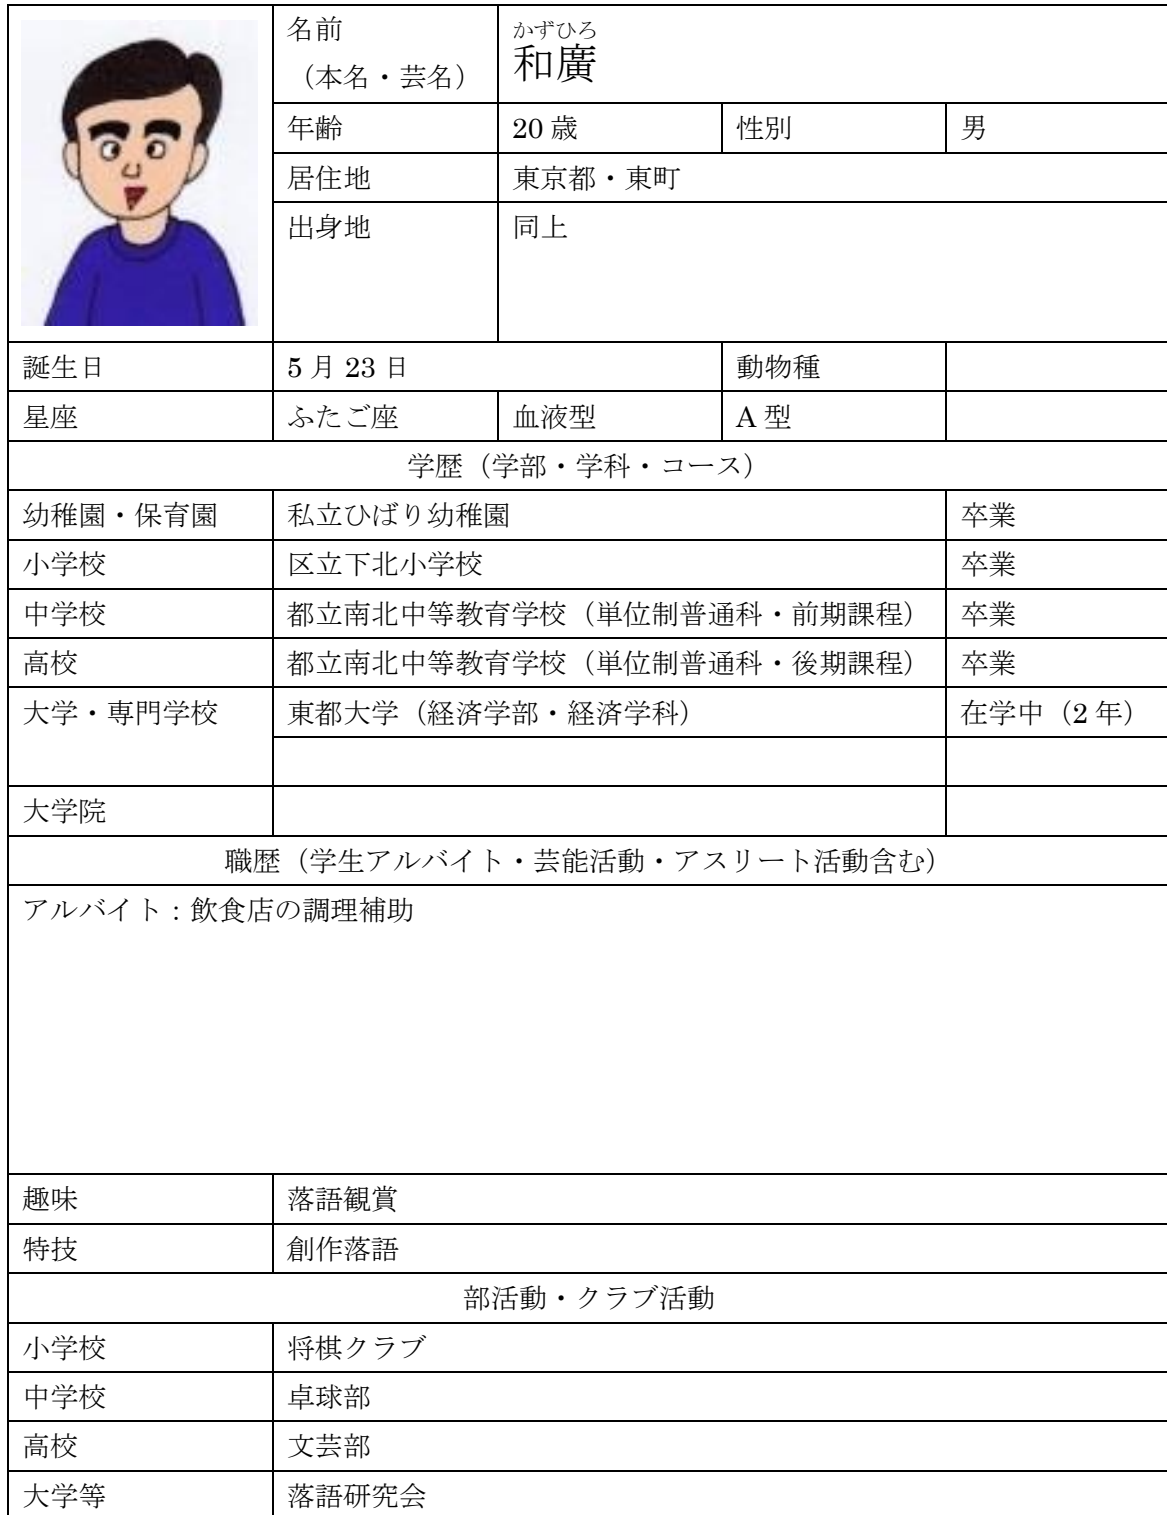 名前
（本名・芸名）
かずひろ
和廣
年齢 20 歳 性別 男
居住地 東京都・東町
出身地 同上
誕生日 5 月 23 日 動物種
星座 ふたご座 血液型 A 型
学歴（学部・学科・コース）
幼稚園・保育園 私立ひばり幼稚園 卒業
小学校 区立下北小学校 卒業
中学校 都立南北中等教育学校（単位制普通科・前期課程） 卒業
高校 都立南北中等教育学校（単位制普通科・後期課程） 卒業
大学・専門学校 東都大学（経済学部・経済学科） 在学中（2 年）
大学院
職歴（学生アルバイト・芸能活動・アスリート活動含む）
アルバイト：飲食店の調理補助
趣味 落語観賞
特技 創作落語
部活動・クラブ活動
小学校 将棋クラブ
中学校 卓球部
高校 文芸部
大学等 落語研究会